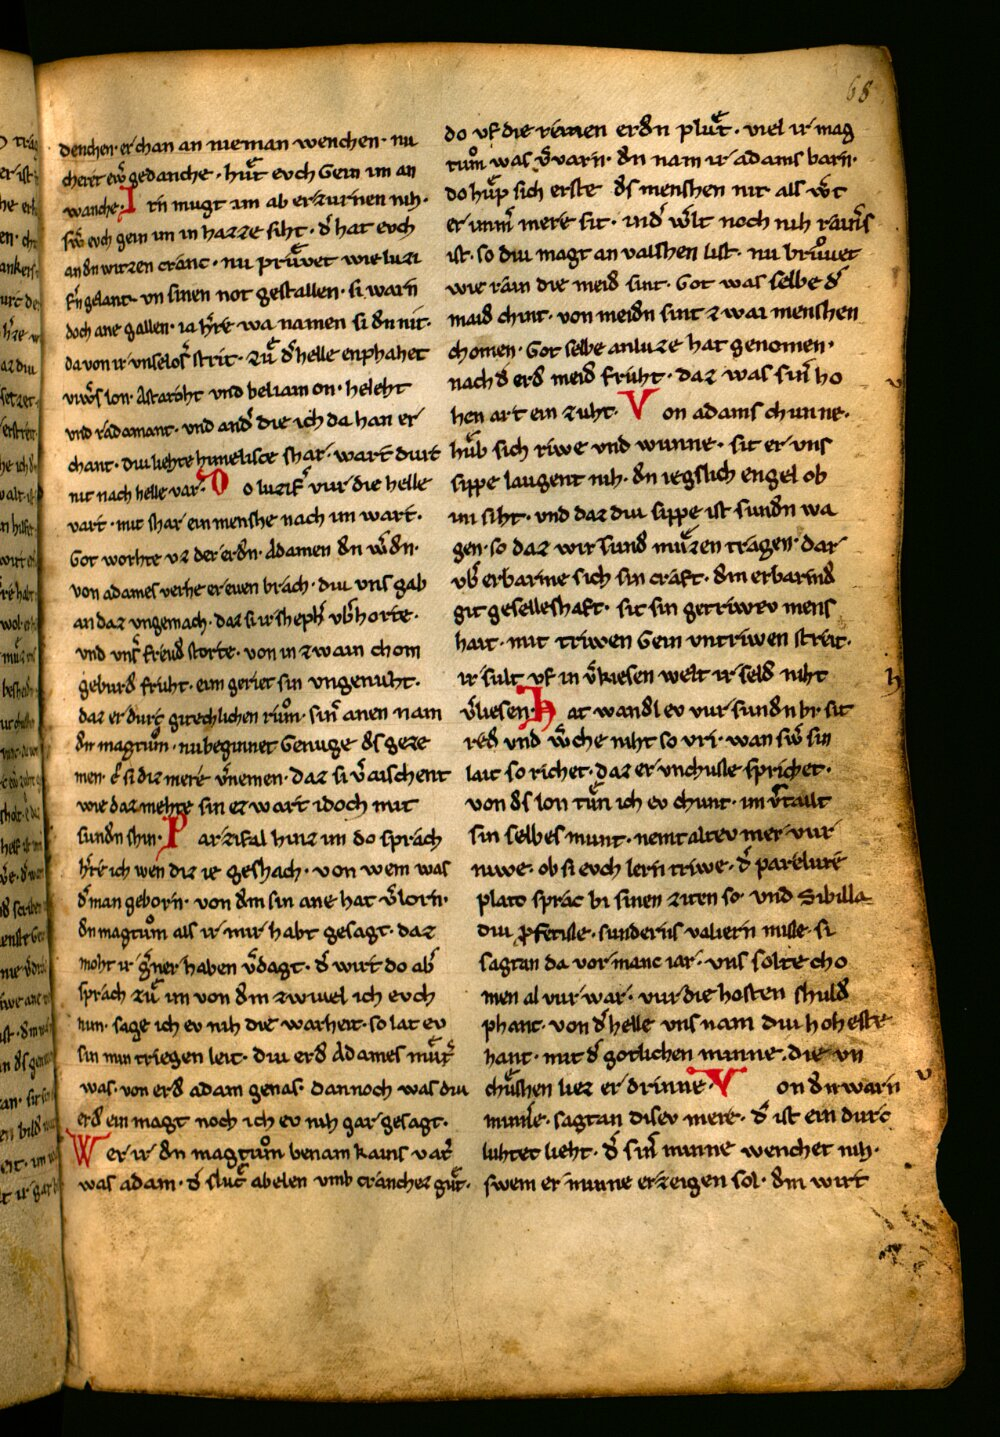 68
denchen· er chan an nieman wenchen· nu
cheret ew̄ gedanche· huͤt evch Gein im an
wanche· I rn mugt im ab erzurnen nih·
sw̄ evch gein im in hazze siht· d̄ hat evch
an dn witzen cranc· nu pruͤvet wie luzi
f̄n gelanc· vn sinen not gestallen· si warn
doch ane gallen· ia h̄re wa namen si dn nit·
da von ir vnselos̄ strit· zuͤ d̄ helle enphahet
viw̄s lon· Astaroht vnd beliamon· heleht
vnd radamant· vnd and̄ die ich da han er
chant· diu liehte himelisce shar· wart durc
nit nach helle var· D o luzif̄ vur die helle
vart· mit shar ein menshe nach im wart·
Got worhte vz der erdn· Adamen dn w̄dn·
von adames verhe er even brach· diu vns gab
an daz vngemach· daz si ir sheph̄ vb̄horte·
vnd vns̄ freud̄ storte· von in zwain chom
geburd̄ fruht· eim geriet sin vngenuht·
daz er durc gitechlichen ruͦm· sin̄ anen nam
dn magtuͦm· nu beginnet Genuge ds geze
men· e si diz mere v̄nemen· daz si v̄aischent
wie daz mehte sin ez wart idoch mit
sundn shin· P arzifal hinz im do sprach
h̄re ich wen diz ie geshach· von wem was
d̄ man geborn· von dm sin ane hat v̄lorn·
dn magtuͦm als ir mir habt gesagt· daz
moht ir ḡner haben v̄dagt· d̄ wirt do ab̄
sprach zuͤ im von dm zwivel ich evch
nim· sage ich ev nih die warheit· so lat ev
sin min triegen leit· diu erd̄ Adames muͤt̄
was· von erd̄ adam genas· dannoch was diu
erd̄ ein magt noch ich ev nih gar gesagt·
W er ir dn magtuͦm benam kains vat̄
was adam· d̄ sluͤc abelen vmb cranchez guͤt·
do vf die reinen erdn pluͤt· viel ir mag
tuͦm was v̄varn· dn nam ir adams barn·
do huͤp sich erste ds menshen nit als w̄t
er imm̄ mere sit· ind̄ w̄lt noch nih rain̄s
ist· so diu magt an valshen list· nu bruͦuet
wie rain die meid̄ sint· Got was selbe d̄
maid̄ chint· von meidn sint zwai menshen
chomen· Got selbe anluze hat genomen·
nach d̄ erd̄ meid̄ fruht· daz was sin̄ ho
hen art ein zuht· V on adams chunne·
huͤb sich riwe vnd wunne· sit er vns
sippe laugent nih· dn iegslich engel ob
im siht· vnd daz diu sippe ist sundn wa
gen· so daz wir sund̄ muͤzen tragen· dar
vb̄ erbarme sich sin craft· dm erbarmd̄
git geselleshaft· sit sin getriwev mens
hait· mit triwen Gein vntriwen streit·
ir sult vf in v̄kiesen welt ir seld̄ niht
v̄liesen· h at wandl ev vur sundn bi· sit
red̄ vnd w̄che niht so vri· wan sw̄ sin
lait so richet· daz er vnchusle sprichet·
von ds lon tuͤn ich ev chunt· im v̄tailt
sin selbes munt· nemt altev mer vur
niwe· ob si evch lern triwe· d̄ parelure
plato sprac bi sinen ziten so· vnd Sibilla
diu profetisse· sunderns valiern misse· si
sagtan da vor manc iar· vns solte cho
men al vur war· vur die hosten shuld̄
phant· von d̄ helle vns nam diu hoheste
hant· mit d̄ gotlichen minne· die vn
chuͤshen liez er drinne· V on dn warn
minne· sagtan disev mere· d̄ ist ein durc
luhtet lieht· d̄ sin̄ minne wenchet nih·
swem er minne erzeigen sol· dm wirt